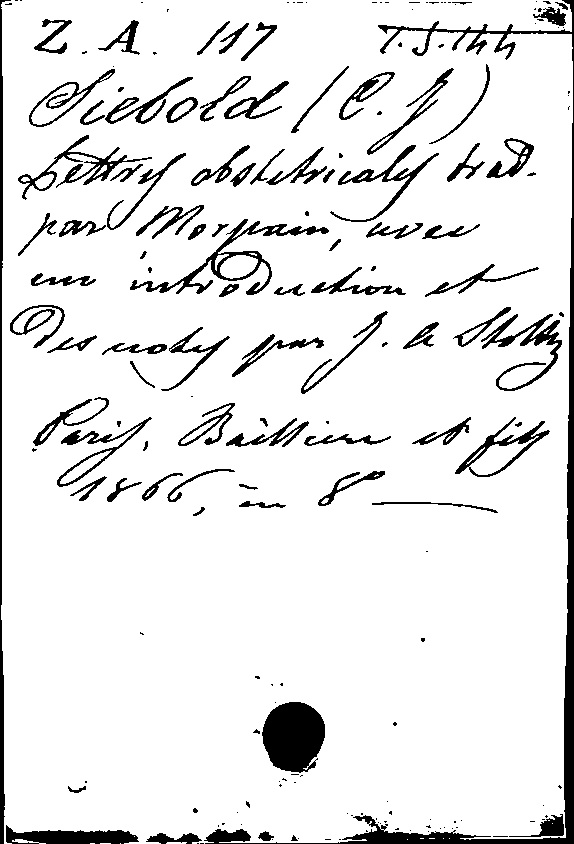 Z. A. 117 T.S.144
Siebold (C. J)
Lettres obstetricales trad.
par Morpain, avec
un introduction et
des notes par J. A Stoltz
Paris, Baillière et fils
1866, in 8°